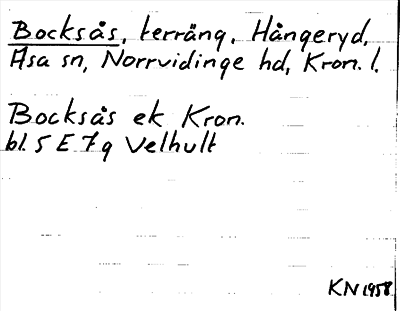 Bocksås, terräng, Hångeryd,
Asa sn, Norrvidinge hd, Kron. l.
Bocksås ek Kron.
bl. 5 E 7 g Velhult
KN 1958